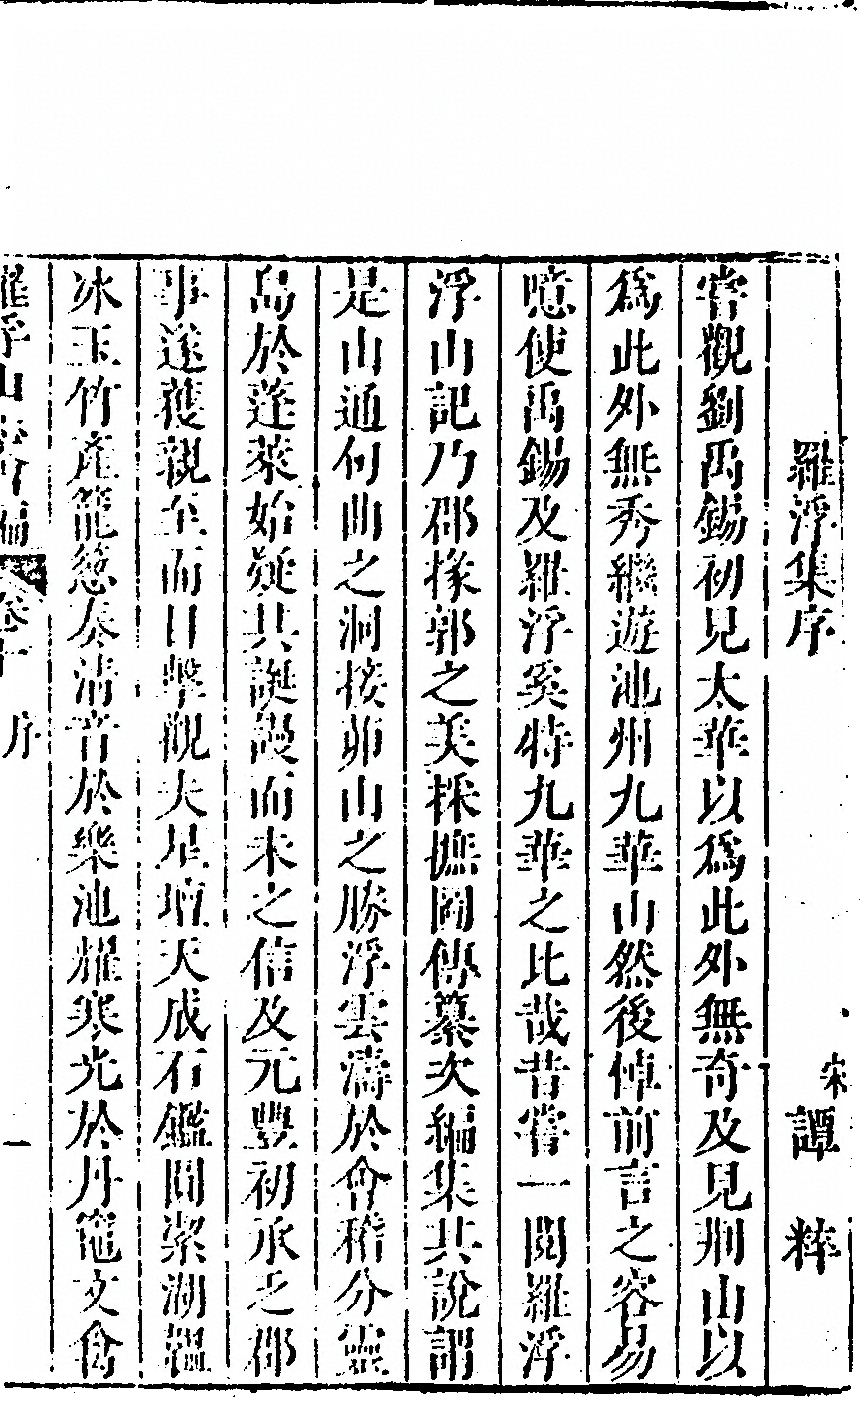 羅浮集序
宋譚粹
嘗觀劉禹錫初見太華以爲此外無奇及見荆山以
爲此外無秀繼遊池州九華山然後悼前言之容易
噫使禹錫及羅浮奚特九華之比哉昔嘗一閱羅浮
浮山記乃郡掾郭之美採摭圖傳纂次編集其說謂
是山通句曲之洞接茆山之勝浮雲濤於會稽分靈
島於蓬萊始疑其誕謾而未之信及元豐初承乏郡
事遂獲親至而目擊觀夫星壇天成石鑑間潔湖韞
冰玉竹產籠葱奏清音於樂池耀寒光於丹竈文禽
羅浮山志會編 卷十 序 一